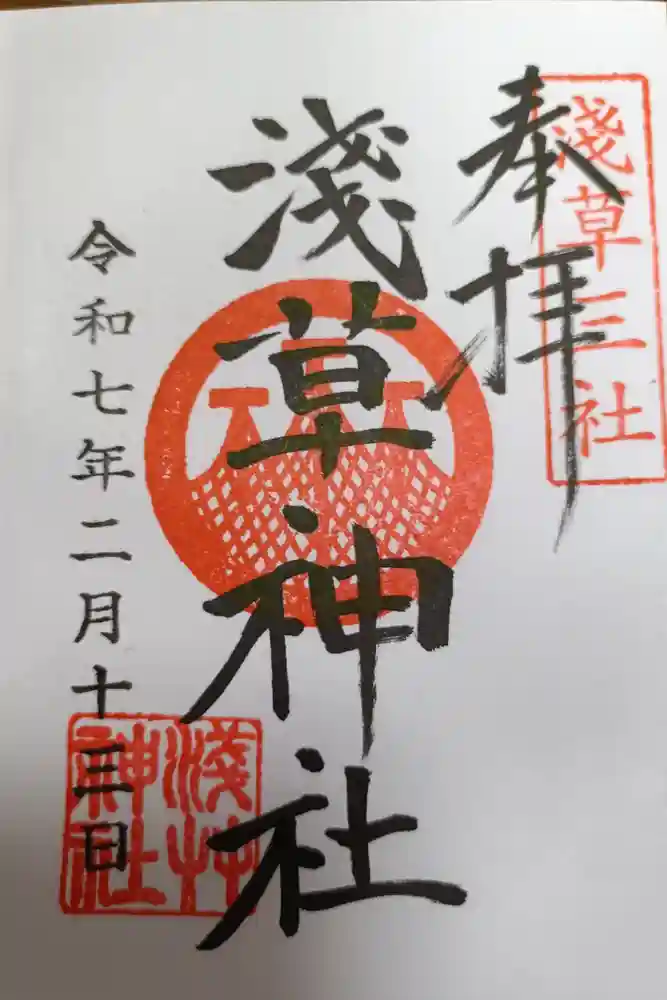 奉拝
淺草三社
淺草神社
令和七年二月十三日
淺草神社